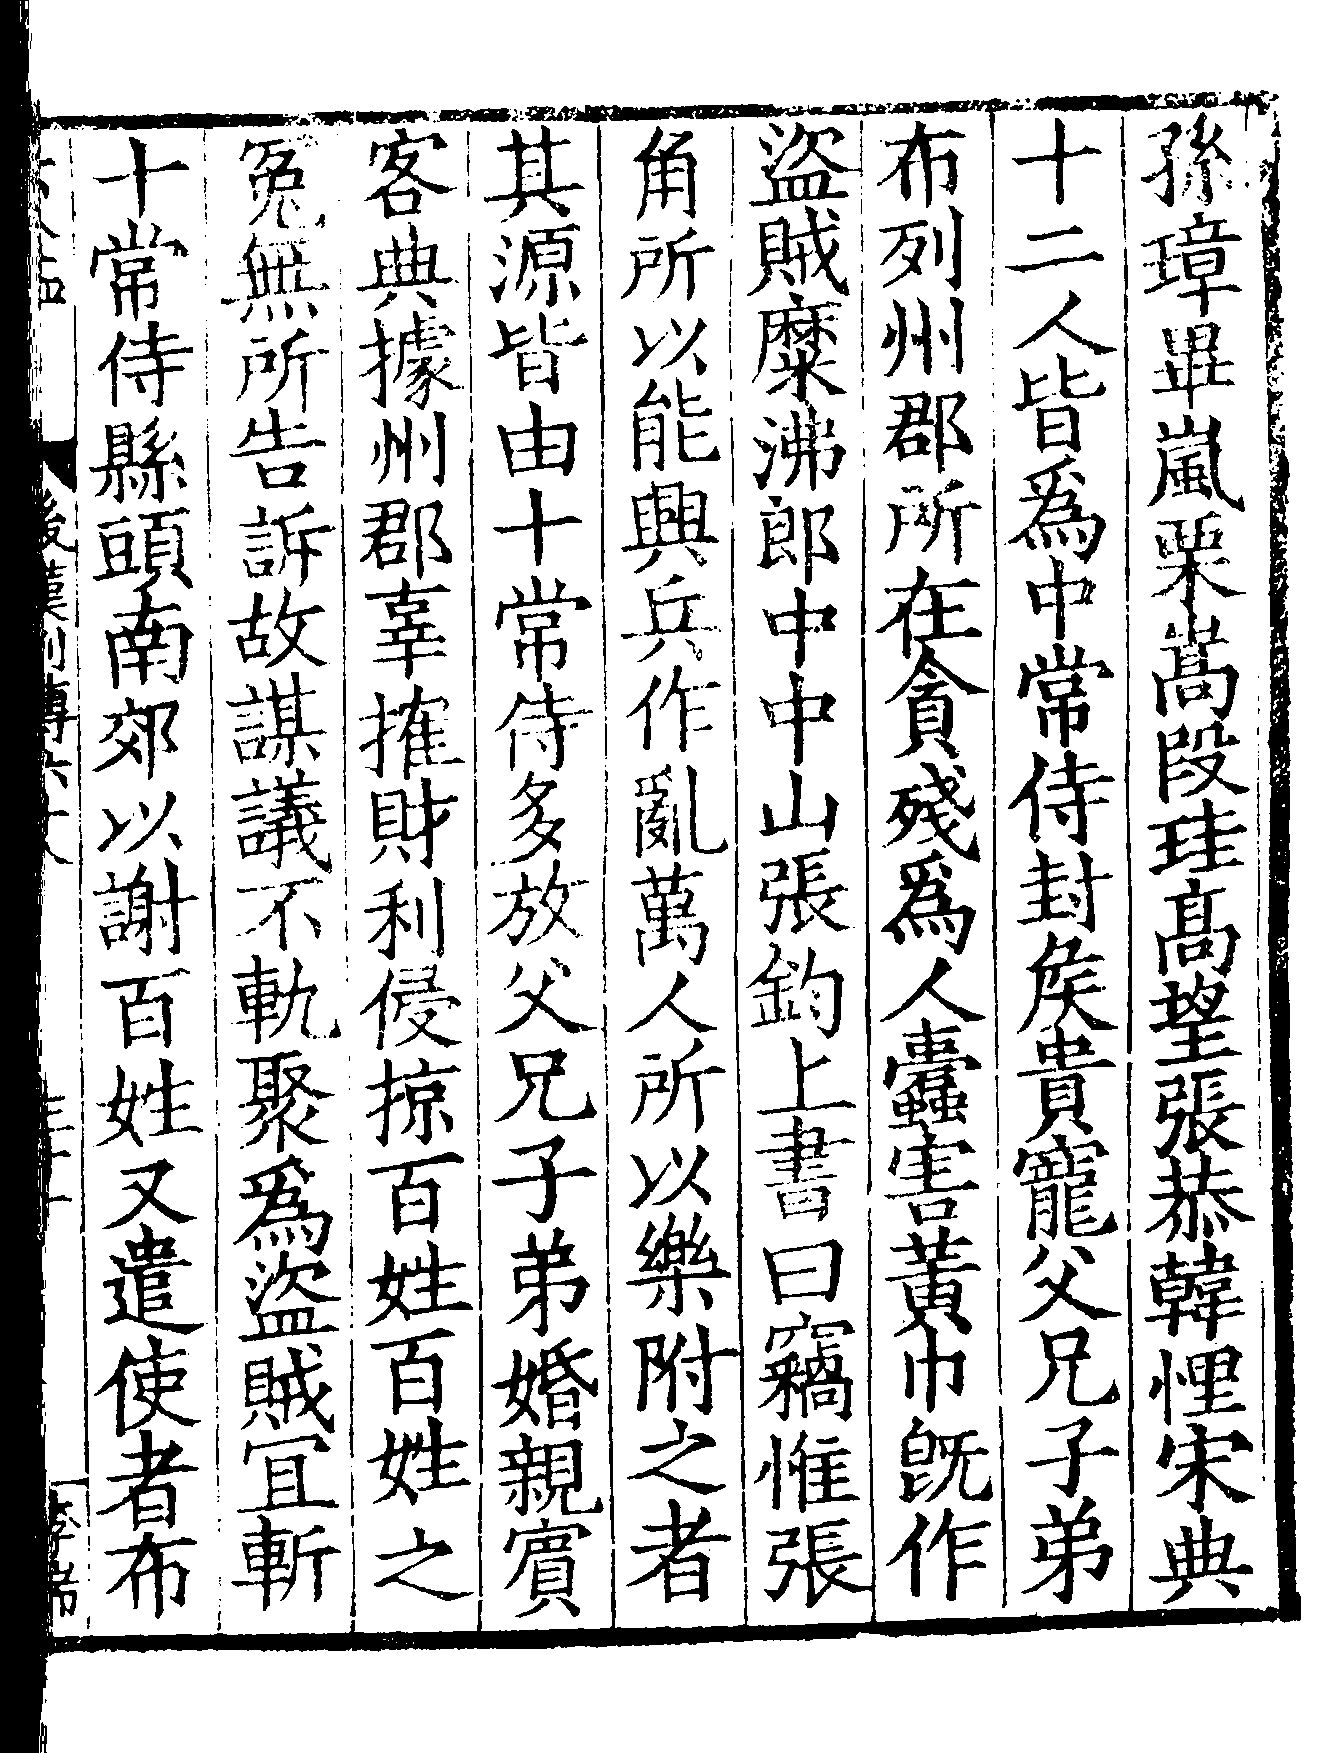 孫璋畢嵐栗嵩段珪高望張恭韓悝宋典
十二人皆爲中常侍封矦貴寵父兄子弟
布列州郡所在貪殘爲人蠹害黃巾旣作
盜賊糜沸郎中中山張鈞上書曰竊惟張
角所以能興兵作亂萬人所以樂附之者
其源皆由十常侍多放父兄子弟婚親賓
客典據州郡辜搉財利侵掠百姓百姓之
冤無所告訴故謀議不軌聚爲盜賊宜斬
十常侍縣頭南郊以謝百姓又遣使者布
後漢列傳六十八